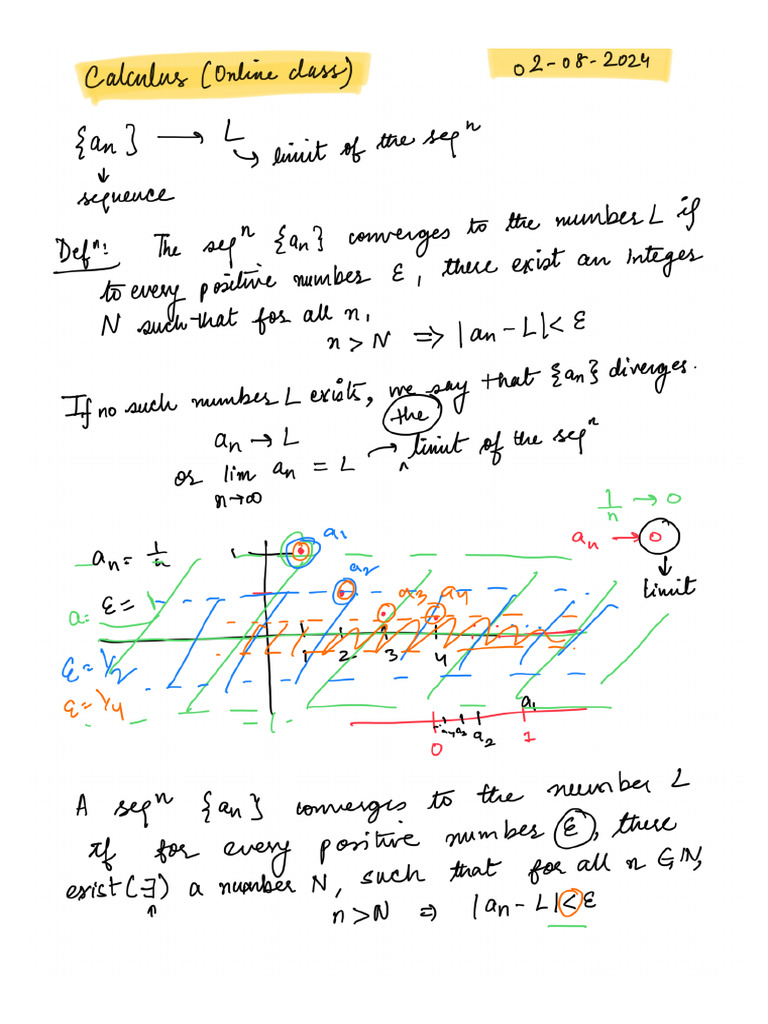 Calculus (Online class)
02-08-2024
{an} → L
↳ limit of the seqⁿ
↓
sequence
Defⁿ: The seqⁿ {an} converges to the number L if
to every positive number ε, there exist an integer
N such that for all n,
n > N ⇒ |an - L| < ε
If no such number L exists, we say that {an} diverges.
the
an → L
or lim an = L → ^ limit of the seqⁿ
n→∞
1/n → 0
an → 0
↓
limit
an = 1/n
1
a1
a2
a3
a4
ε = 1
a=
1 2 3 4
ε = 1/2
ε = 1/4
-1
a1
a4 a3 a2
0 1
A seqⁿ {an} converges to the number L
if for every positive number ε, there
exist (∃) a number N, such that for all n ∈ ℕ,
n > N ⇒ |an - L| < ε